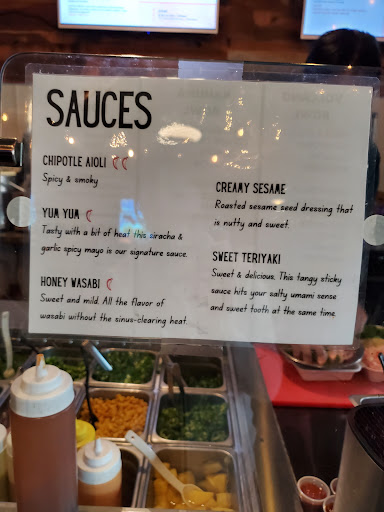 SAUCES
CHIPOTLE AIOLI
Spicy & smoky
YUM YUM
Tasty with a bit of heat this siracha &
garlic spicy mayo is our signature sauce.
HONEY WASABI
Sweet and mild. All the flavor of
wasabi without the sinus-clearing heat.
CREAMY SESAME
Roasted sesame seed dressing that
is nutty and sweet.
SWEET TERIYAKI
Sweet & delicious. This tangy sticky
sauce hits your salty umami sense
and sweet tooth at the same time.